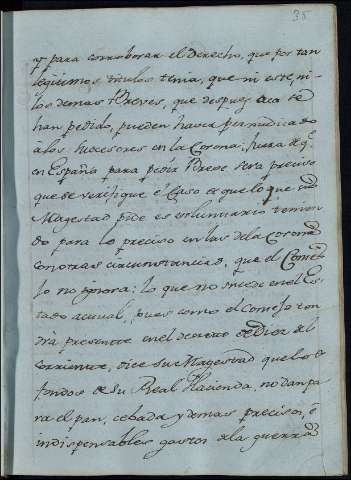 35
y para corroborar el derecho, que por tan
legitimos titulos tenia, que ni este, ni
los demas Breves, que despues aca se
han pedido, pueden haver perjudicado
à los subcesores en la Corona: fuera de q.e
en España para pedir Breve sera preciso
que se verifique el caso de que lo que
Magestad pide es voluntario tenien
do para lo preciso en las de la Corona
con otras circunstancias, que el Conse
jo no ignora; lo que no sucede en el Es
tado actual, pues como el Consejo ten
drà presente en el decreto de Diez del
corriente, dice su Magestad que los
fondos de su Real Hacienda, no dan pa
ra el pan, cebada y demas precisos, è
indispensables gastos de la guerra